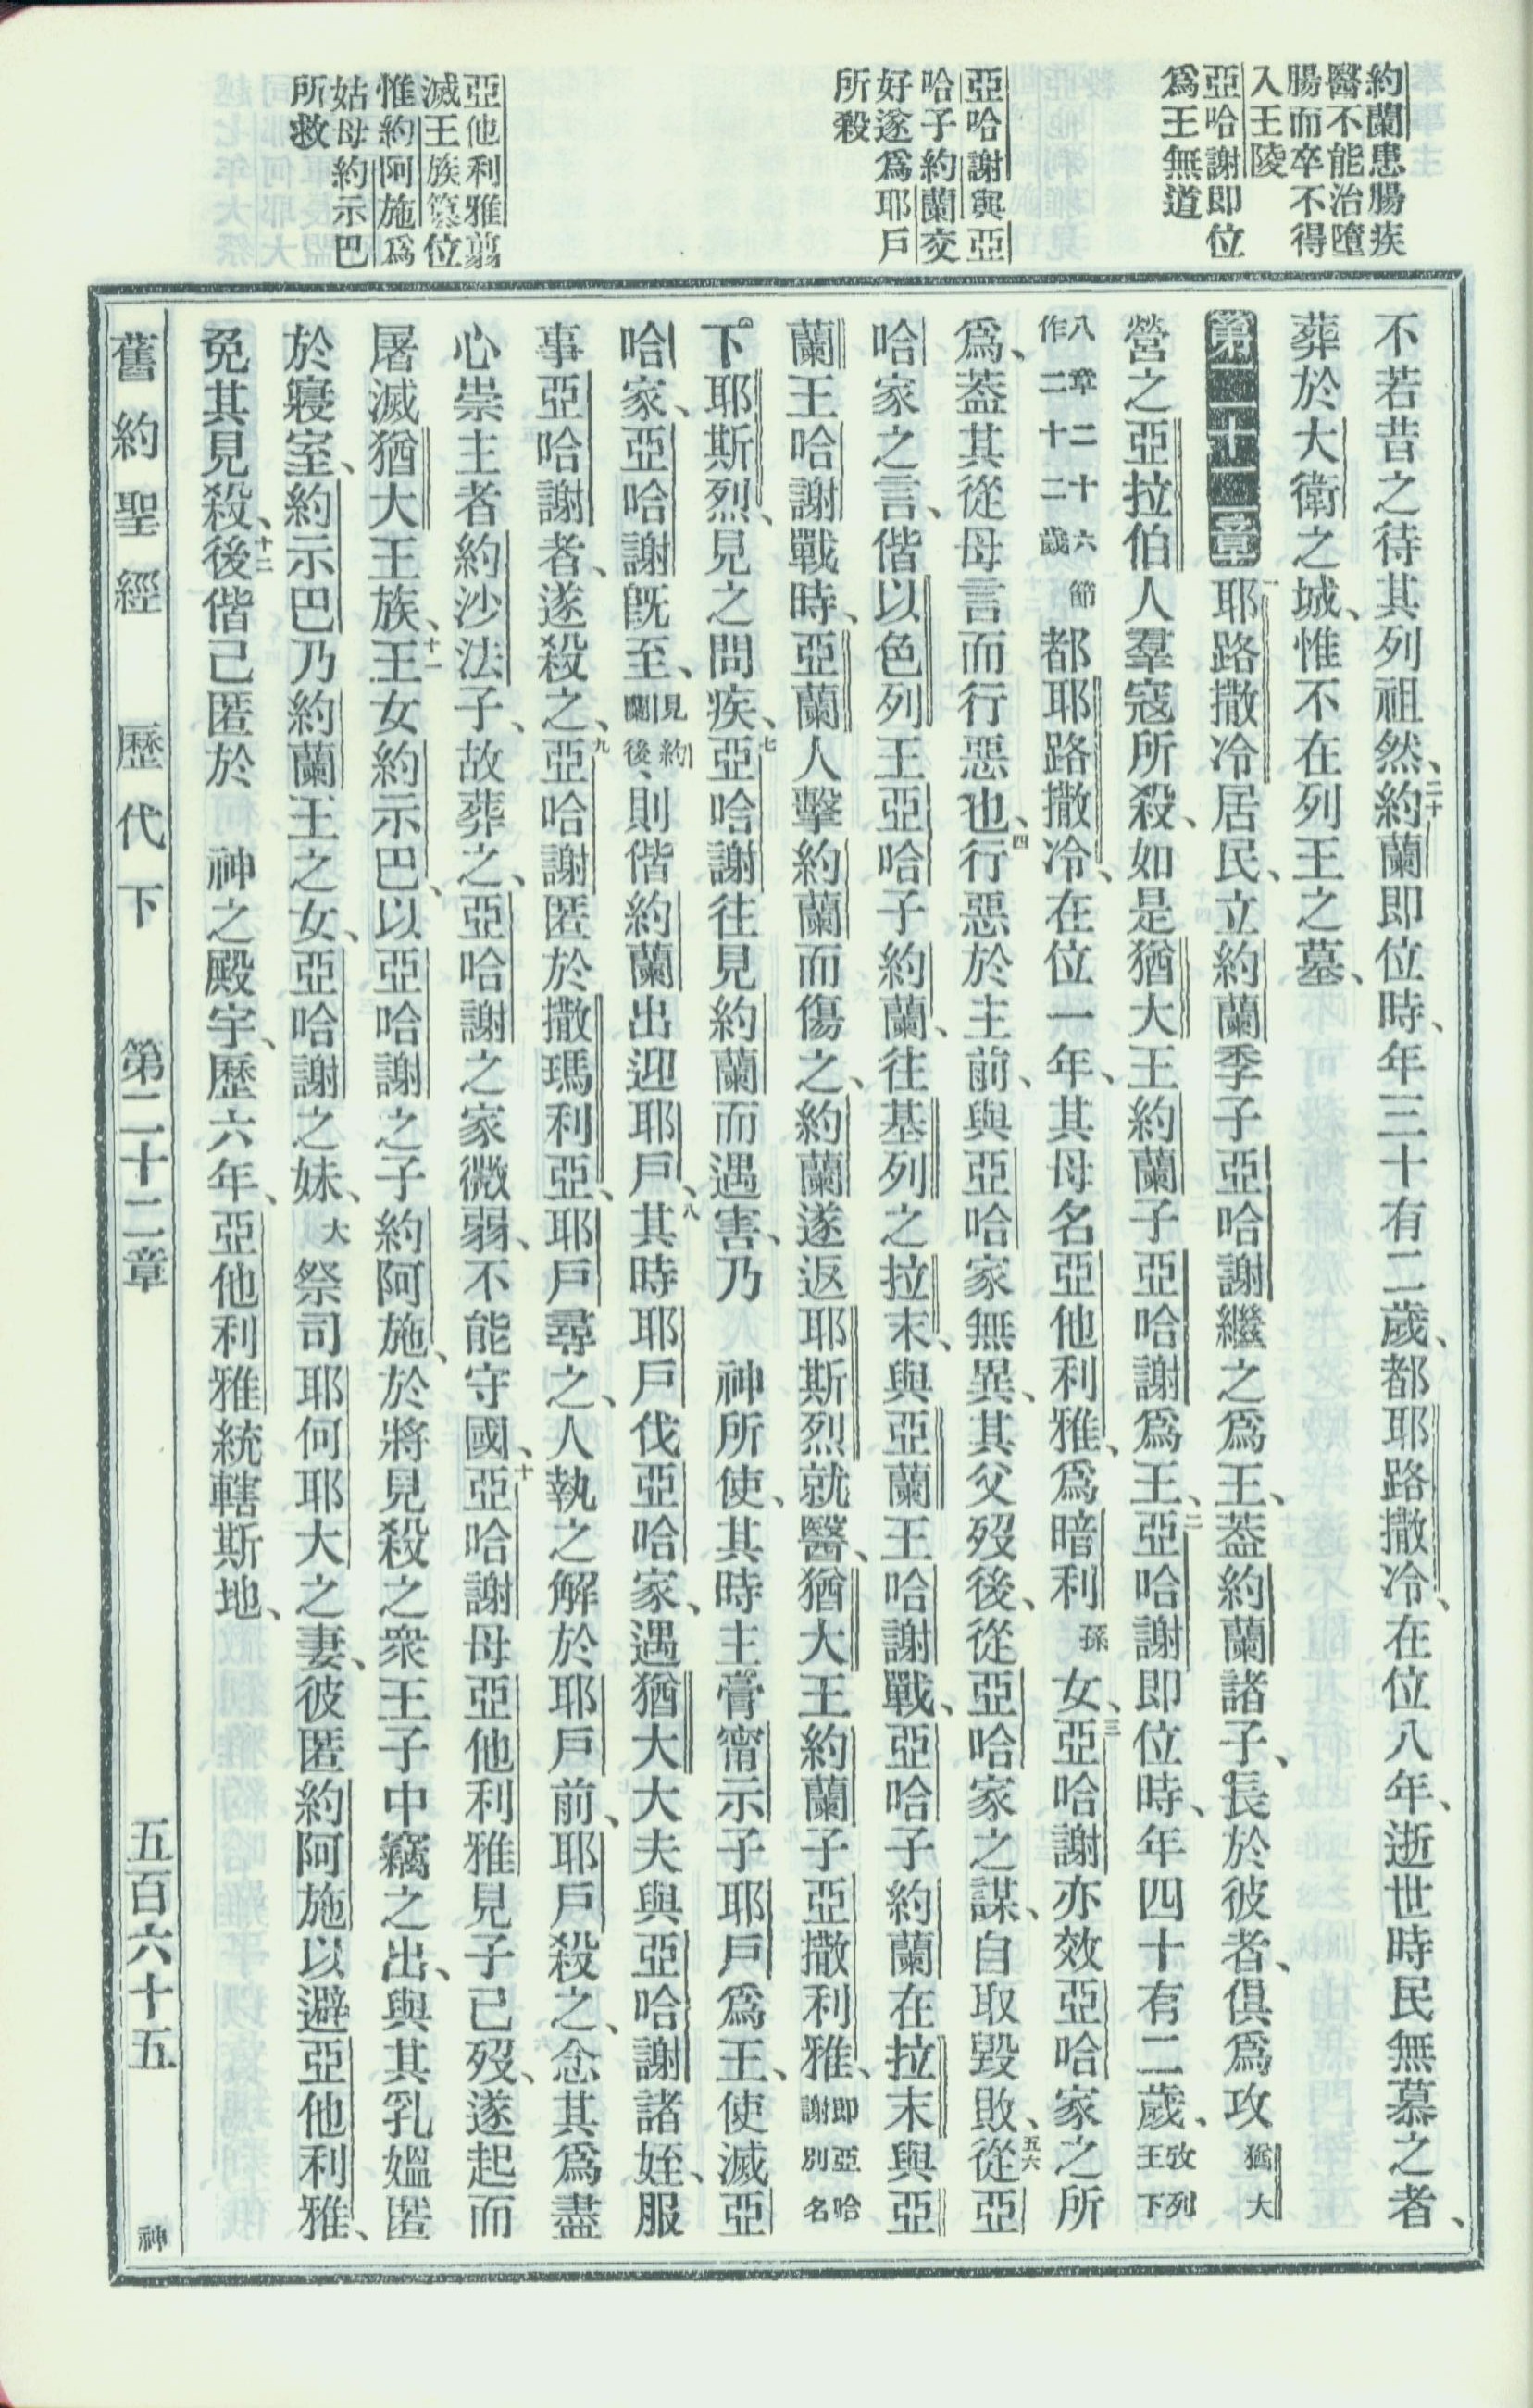 約蘭患腸疾
醫不能治墮
腸而卒不得
入王陵
亞哈謝即位
爲王無道
亞哈謝與亞
哈子約蘭交
好遂爲耶戶
所殺
亞他利雅翦
滅王族篡位
惟約阿施爲
姑母約示巴
所救
不若昔之待其列祖然、二十約蘭即位時、年三十有二歲、都耶路撒冷、在位八年、逝世時民無慕之者、
葬於大衛之城、惟不在列王之墓、
第二十二章 一耶路撒冷居民、立約蘭季子亞哈謝繼之爲王、蓋約蘭諸子、長於彼者、俱爲攻猶大
營之亞拉伯人羣寇所殺、如是猶大王約蘭子亞哈謝爲王、二亞哈謝即位時、年四十有二歲、攷列王下
八章二十六節作二十二歲都耶路撒冷、在位一年、其母名亞他利雅、爲暗利孫女、三亞哈謝亦效亞哈家之所
爲、蓋其從母言而行惡也、四行惡於主前、與亞哈家無異、其父歿後、從亞哈家之謀、自取毀敗、五六從亞
哈家之言、偕以色列王亞哈子約蘭、往基列之拉末、與亞蘭王哈謝戰、亞哈子約蘭在拉末與亞
蘭王哈謝戰時、亞蘭人擊約蘭而傷之、約蘭遂返耶斯烈就醫、猶大王約蘭子亞撒利雅、即亞哈謝別名
下耶斯烈、見之問疾、七亞哈謝往見約蘭而遇害、乃 神所使、其時主膏甯示子耶戶爲王、使滅亞
哈家、亞哈謝旣至、見約蘭後、則偕約蘭出迎耶戶、八其時耶戶伐亞哈家、遇猶大大夫與亞哈謝諸姪、服
事亞哈謝者、遂殺之、九亞哈謝匿於撒瑪利亞、耶戶尋之、人執之解於耶戶前、耶戶殺之、念其爲盡
心崇主者約沙法子、故葬之、亞哈謝之家微弱、不能守國、十亞哈謝母亞他利雅見子已歿、遂起而
屠滅猶大王族、十一王女約示巴、以亞哈謝之子約阿施、於將見殺之衆王子中竊之出、與其乳媼匿
於寢室、約示巴乃約蘭王之女、亞哈謝之妹、大祭司耶何耶大之妻、彼匿約阿施以避亞他利雅、
免其見殺、十二後偕己匿於 神之殿宇、歷六年、亞他利雅統轄斯地、
舊約聖經 歷代下 第二十二章 五百六十五 神